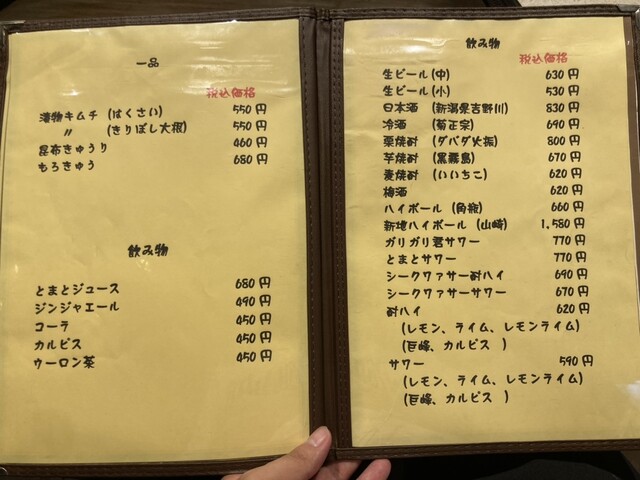 一品
税込価格
漬物キムチ (はくさい) 550円
〃 (きりぼし大根) 550円
昆布きゅうり 460円
もろきゅう 680円
飲み物
とまとジュース 680円
ジンジャエール 490円
コーラ 450円
カルピス 450円
ウーロン茶 450円
飲み物
税込価格
生ビール(中) 630円
生ビール(小) 530円
日本酒 (新潟県吉野川) 830円
冷酒 (菊正宗) 690円
栗焼酎 (ダバダ火振) 800円
芋焼酎 (黒霧島) 670円
麦焼酎 (いいちこ) 620円
梅酒 620円
ハイボール (角瓶) 660円
新地ハイボール (山崎) 1,580円
ガリガリ君サワー 770円
とまとサワー 770円
シークワァサー酎ハイ 690円
シークワァサーサワー 670円
酎ハイ 620円
(レモン、ライム、レモンライム)
(巨峰、カルピス )
サワー 590円
(レモン、ライム、レモンライム)
(巨峰、カルピス )